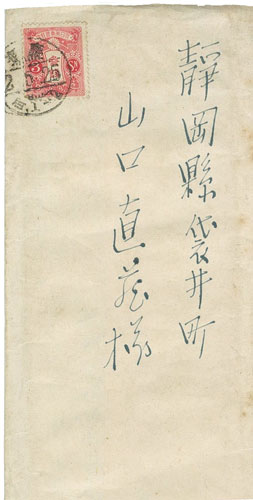 靜岡縣袋井町
山口直藏樣